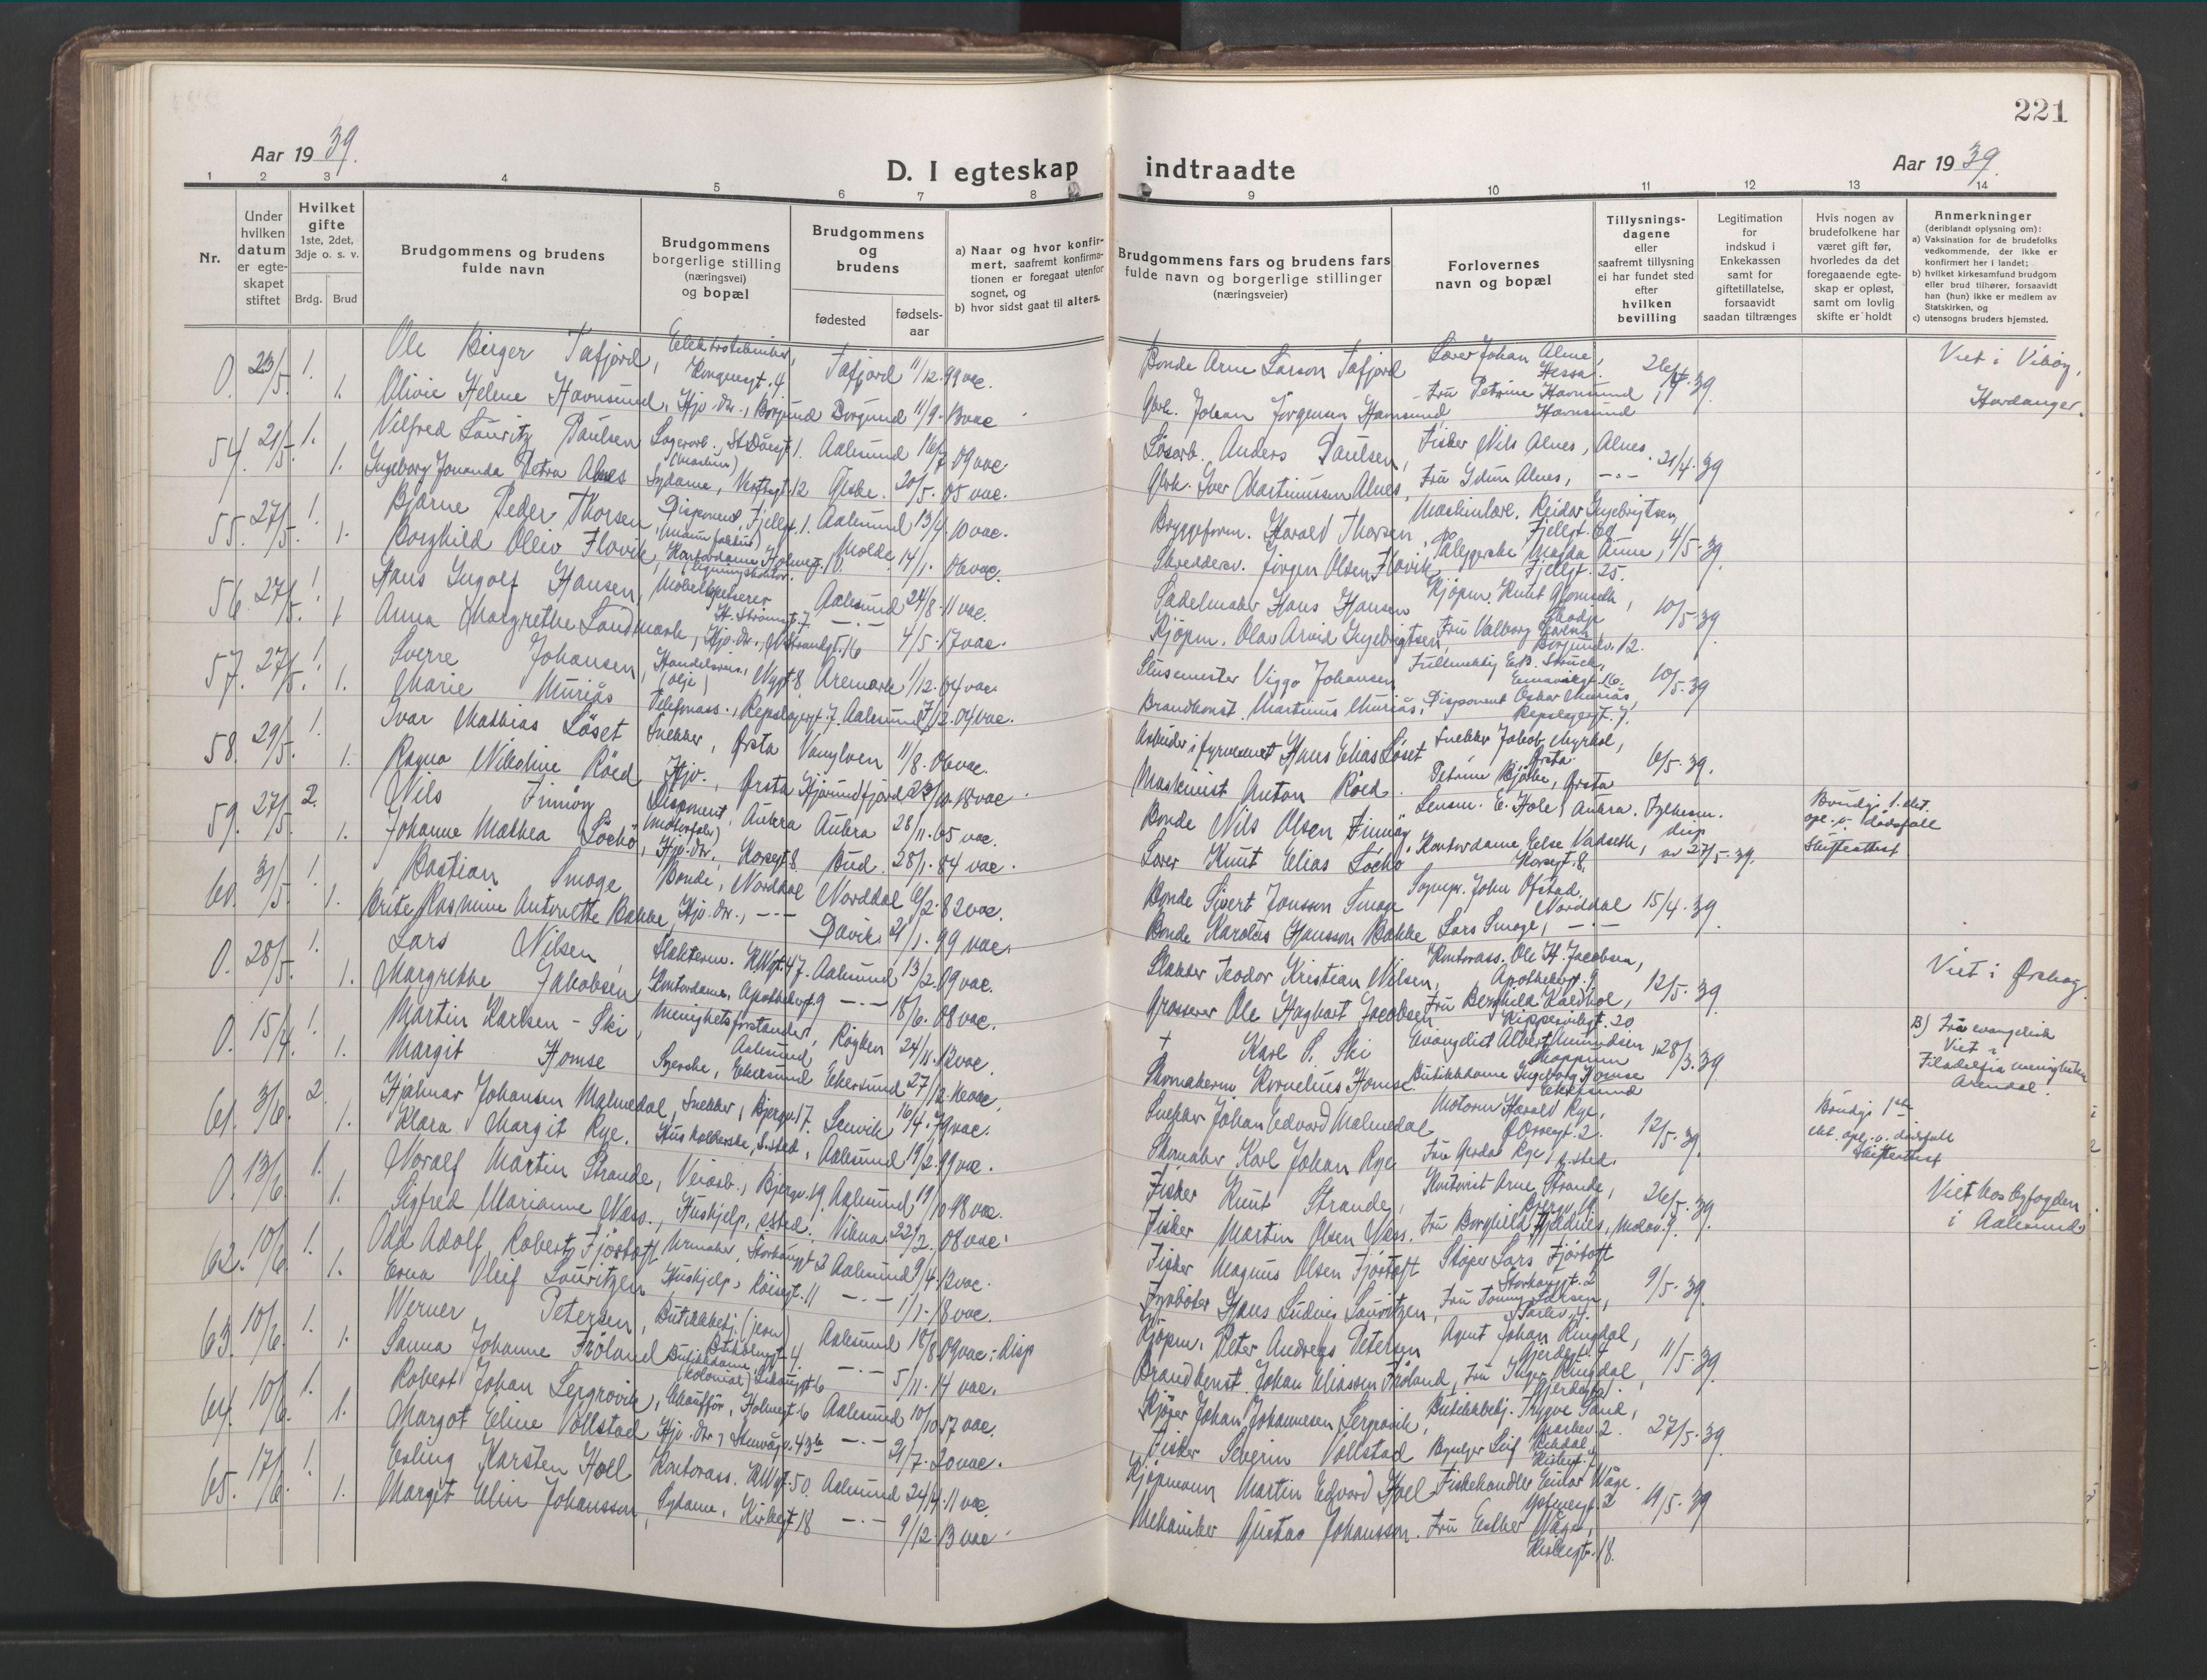 221
Aar 1939.
D. I egteskap indtraadte
Aar 1939.
1 2 3 4 5 6 7 8 9 10 11 12 13 14
Nr.
Under hvilken datum er egteskapet stiftet
Hvilket gifte 1ste, 2det, 3dje o. s. v.
Brdg. Brud
Brudgommens og brudens fulde navn
Brudgommens borgerlige stilling (næringsvei) og bopæl
Brudgommens og brudens
fødested
fødsels-aar
a) Naar og hvor konfirmert, saafremt konfirmationen er foregaat utenfor sognet, og
b) hvor sidst gaat til alters.
Brudgommens fars og brudens fars fulde navn og borgerlige stillinger (næringsveier)
Forlovernes navn og bopæl
Tillysningsdagene eller saafremt tillysning ei har fundet sted efter hvilken bevilling
Legitimation for indskud i Enkekassen samt for giftetillatelse, forsaavidt saadan tiltrænges
Hvis nogen av brudefolkene har været gift før, hvorledes da det foregaaende egteskap er opløst, samt om lovlig skifte er holdt
Anmerkninger (deriblandt oplysning om):
a) Vaksination for de brudefolks vedkommende, der ikke er konfirmert her i landet;
b) hvilket kirkesamfund brudgom eller brud tilhører, forsaavidt han (hun) ikke er medlem av Statskirken, og
c) utensogns bruders hjemsted.
0. 23/5. 1. Ole Birger Tafjord, Kongensgt. 4 Tafjord 11/12. 99 vac. Bonde Arne Larson Tafjord Lærer Johan Alme, Hessa. 26/4. 39 Viet i Vikøy,
1. Olivie Helene Havnsund, Hjv. dr., Borgund Borgund 11/9. 13 vac. Gbrk. Johan Jørgensen Havnsund Fru Petrine Havnsund, Havnsund Hardanger.
54. 21/5. 1. Vilfred Lauritz Paulsen Lagerarb. 1. Aalesund 16/7 09 vac Løsarb. Anders Paulsen, Fisker Nils Alnes, Alnes. 21/4. 39
1. Ingeborg Jovanda Petra Alnes Sydame, 12 Giske. 20/5. 05 vac. Gbrk. Iver Martinussen Alnes, Fru Idun Alnes, -"-
55. 27/5. 1. Bjarne Peder Thorsen Disponent, Fjellgt. 1. Aalesund 13/4 10 vac. Bryggeform. Harald Thorsen, Maskinlærl. Reidar Ingebrigtsen, Fjellgt. 4/5. 39.
1. Borghild Oliv Flovik, Kontordame Molde 14/1. 06 vac. Skreddersv. Jørgen Olsen Flovik, Magda Aune, Fjellgt. 25.
56. 27/5. 1. Hans Ingolf Hansen, Møbeltapetserer Aalesund 24/8. 11 vac. Sadelmaker Hans Hansen Kjøpm. Knut 10/5. 39
1 Anna Margrethe Landmark, Hjv. dr., 16 -"- 4/5. 17 vac. Kjøpm. Olav Arvid Ingebrigtsen, Fru Valborg 12.
57. 27/5. 1. Sverre Johansen, Handelsreis., (olje) Nygt. 8 Aremark 1/12. 04 vac. Slusemester Viggo Johansen 10/5. 39
1. Marie Muriås Telefonass., Repslagergt. 7. Aalesund 04 vac. Brandkonst. Martinus Muriås, Disponent Oskar Muriås, Repslagergt. 7.
58. 29/5. 1. Ivar Mathias Løset Snekker, Ørsta Vanylven 11/8. 06 vac. Arbeider i fyrvesenet Hans Elias Løset Snekker Jakob Myrhol, Ørsta. 6/5. 39.
1. Ragna Nikoline Røed Hjv., Ørsta Hjørundfjord 23/10. 18 vac. Maskinist Anton Røed. Petrine Bjåstu, Ørsta
59. 27/5. 2. Nils Finnøy Disponent, Aukra Aukra 28/11. 05 vac. Bonde Nils Olsen Finnøy Lensm. E. Hole, Aukra. disp av 27/5. 39. Brudg. 1. ekt. opl. v. dødsfall Skifteattest
1. Johanne Mathea Sæchø, Hjv. dr., Korsegt. 8 Bud. 28/1. 84 vac. Lærer Knut Elias Sæchø Kontordame Else Vadseth, Korsegt. 8.
60. 3/5. 1. Bastian Smoge Bonde, Norddal Norddal 6/2. 82 vac. Bonde Sivert Jonsson Smoge Sognepr. John Ofstad Norddal 15/4. 39
1. Brite Rasmine Antonette Bakke, Hjv. dr., -"- Davik 21/1. 99 vac. Bonde Karolus Hansson Bakke Lars Smoge, -"-
0. 28/5. 1. Lars Nilsen, Slakterm. 47. Aalesund 13/2. 09 vac. Slakter Teodor Kristian Nilsen, Kontorass. Ole H. Jacobsen, Apothekergt. 9 12/5. 39. Viet i Ørskog.
1. Margrethe Jakobsen Kontordame, Apothekergt. 9 -"- 18/6. 08 vac. Grosserer Ole Hagbart Jacobsen. Fru Berghild Kaldhol, Kipperviksgt. 20
0. 15/4. 1. Martin Karlsen-Ski, Menighetsforstander, Aalesund Røyken 24/11. 12 vac. † Karl S. Ski Evangelist Albert Amundsen, 28/3. 39 B) Fra evangelisk Viet i Filadelfia menigheten Arendal.
1. Margit Homse Syerske, Ekersund Ekersund 27/12. 10 vac. Skomakerm Kornelius Homse. Butikkdame Ingeborg Homse Ekersund
61. 3/6. 2. Hjalmar Johansen Malmedal, Snekker, Bjergv. 17. Lenvik 16/4. 79 vac. Snekker Johan Edvard Malmedal Motorm Harald Rye, 12/5. 39. Brudgs 1ste ekt. opl. v. dødsfall Skifteattest
1. Klara Margit Rye. Husholderske, s. sted, Aalesund 19/2. 99 vac. Skomaker Karl Johan Rye Fru Gerda Rye, s. sted.
0. 13/6. 1. Noralf Martin Strande, Veiarb., Bjergv. 19. Aalesund 19/10 18 vac. Fisker Knut Strande, Kontorist Arne Strande, 26/5. 39 Viet hos byfogden i Aalesund
1. Sigfred Marianne Næss., Hushjelp, s sted. Vikna 22/2. 08 vac. Fisker Martin Olsen Næss. Fru Borghild Fjeldnes,
62. 10/6. 1. Odd Adolf Roberts Fjørtoft Urmaker, Storhaugt 2 Aalesund 9/4. 13 vac. Fisker Magnus Olsen Fjørtoft Støper Lars Fjørtoft Storhaugt. 2 9/5. 39
1. Erna Oleif Lauritzen Hushjelp, Røisgt. 11 -"- 1/1. 18 vac. Fyrbøter Hans Ludvig Lauritzen, Fru Tommy Larsen,
63. 10/6. 1. Werner Petersen, Butikkbetj. (jern) Aalesund 18/8. 09 vac: Disp Kjøpm. Peter Andreas Petersen Agent Johan Ringdal, 11/5. 39
1. Sanna Johanne Frøland Butikkdame, (kolonial) -"- 5/11. 14 vac. Brandkonst. Johan Eliassen Frøland, Fru Inger Ringdal,
64. 10/6. 1. Robert Johan Lergrovik, Chauffør, Holmegt. 6 Aalesund 10/10 17 vac. Skjøper Johan Johannesen Lergrovik, Butikkbetj. Trygve Sand, 27/5. 39
1. Margot Eline Vollstad Hjv. dr, 43b -"- 21/7. 20 vac. Fisker Severin Vollstad
65. 17/6. 1. Erling Karsten Hoel Kontorass. 50. Aalesund 24/4. 11 vac. Kjøpmann Martin Edvard Hoel Fiskehandler Einar Wåge. 19/5. 39
1. Margit Elin Johansson, Sydame, Kirkegt 18 -"- 9/12 13 vac. Mekaniker Gustav Johansson. Fru Esther Wåge, Kirkegt. 18.